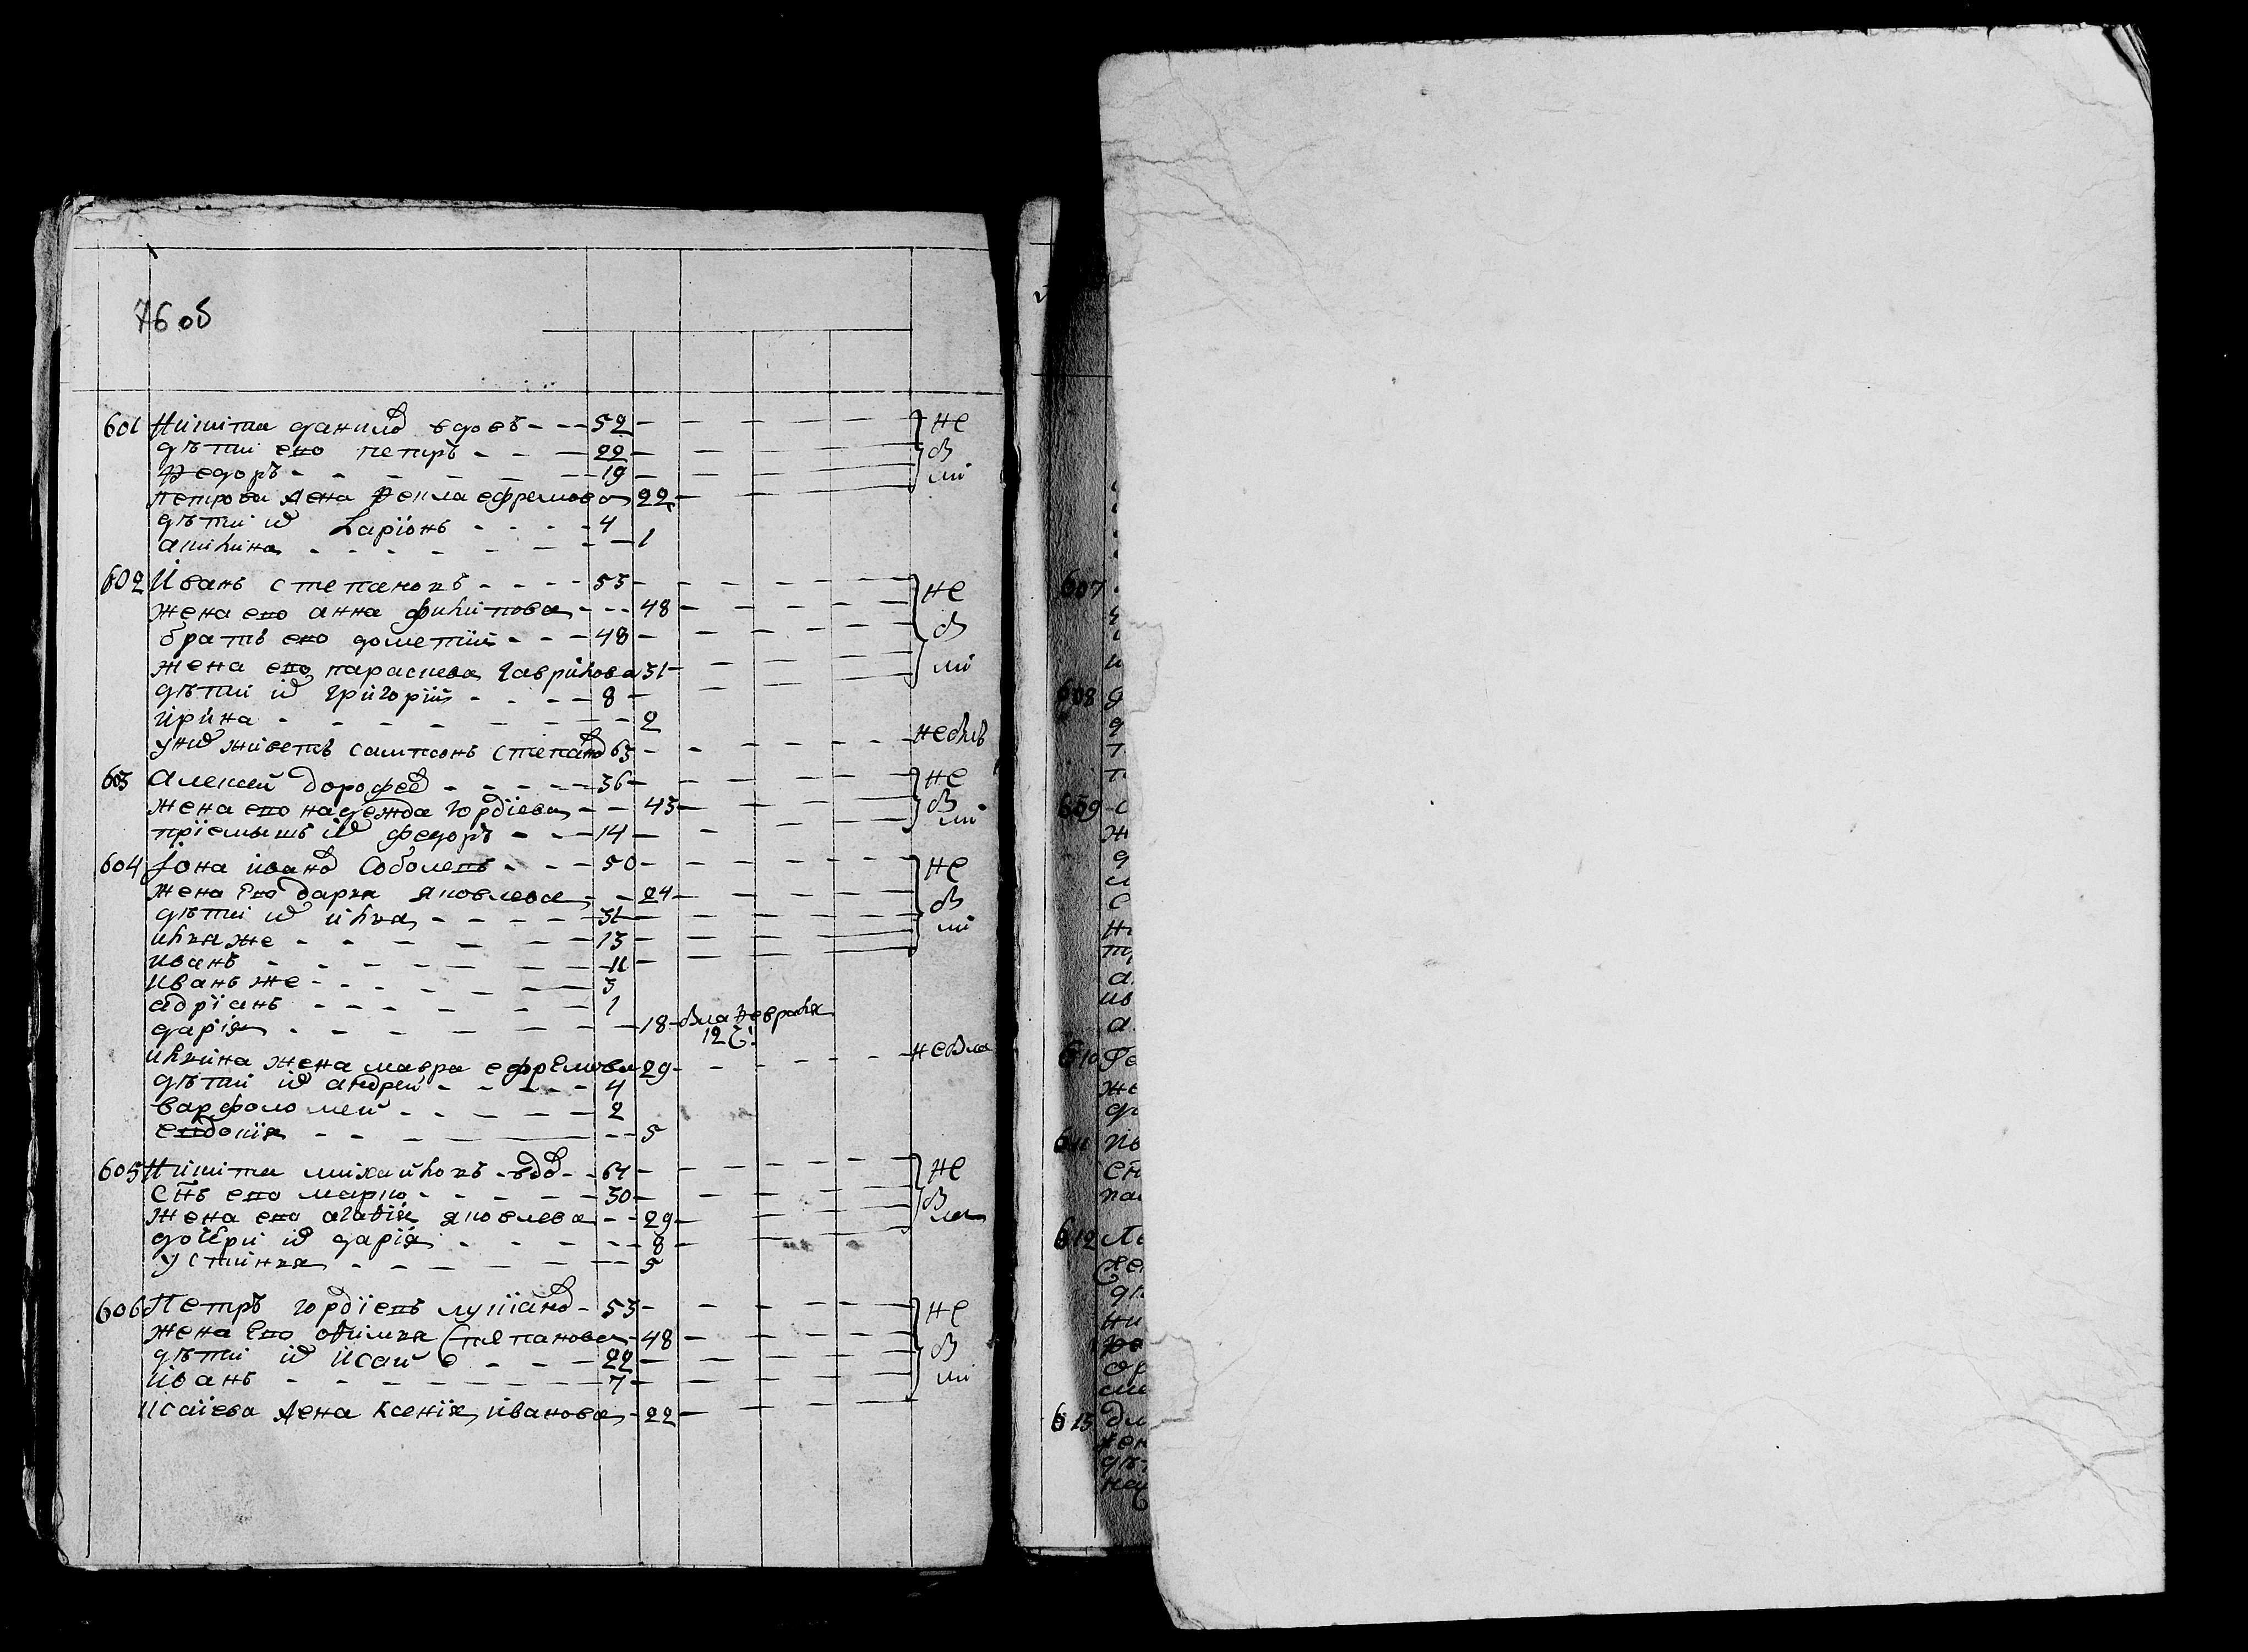 76 об
601 Никита данилов вдовъ - - - 52 - - - - - не
дѣти ево петръ - - - 22 - - - - - б
Федоръ - - - - - 19 - - - - ли
петрова жена Фекла ефремова 22 - - -
дѣти их Ларіонъ - - - - 4
акилина - - - - - - - 1
602 Иванъ степановъ - - - - 53 - - - - - не
жена ево анна филипова - - - 48 - - - -
братъ ево дометіи - - - 48 - - - - - б
жена ево параскева Гаврилова 31 - - - - ли
дѣти их григоріи - - - - 8 -
ирина - - - - - - - - 2
у них живетъ сампсонъ степанов 63 - - - - - не былъ
603 Алексеи Дорофеев - - - - - 36 - - - - - не
жена ево надежда гордіева - - 43 - - - - б
пріемышъ их федоръ - - - 14 - - - - ли
604 Іона иванов Соболевъ - - - 50 - - - - - не
жена Ево дарья яковлева - - 24 - - - -
дѣти их илья - - - - - 31 - - - - - б
илья же - - - - - - 13 - - - - ли
иванъ - - - - - - - 11 - - - -
иванъ же - - - - - 3
адріанъ - - - - - - 1
дарія - - - - - - - 18 - была Февраля
12 Ч:
ильина жена мавра ефремова 29 - - - - - не была
дѣти их андреи - - - - - 4
варфоломеи - - - - - - 2
евдокія - - - - - - 5
605 Никита михаиловъ - вдов - - 61 - - - - - не
снъ ево марко - - - - - - 30 - - - - -
жена ево агафія яковлева - - 29 - - - - б
дочери их дарія - - - - - 8 - - - - ли
устинья - - - - - - - 5
606 Петръ гордіевъ лукіанов - 53 - - - - - не
жена Ево офимья Степанова - 48 - - - - -
дѣти их Исаи - - - 22 - - - - - б
Иванъ - - - - - - - - 7 - - - - - ли
Исаіева жена ксенія иванова - 22 - - - -
607
608
609
610
611
612
613